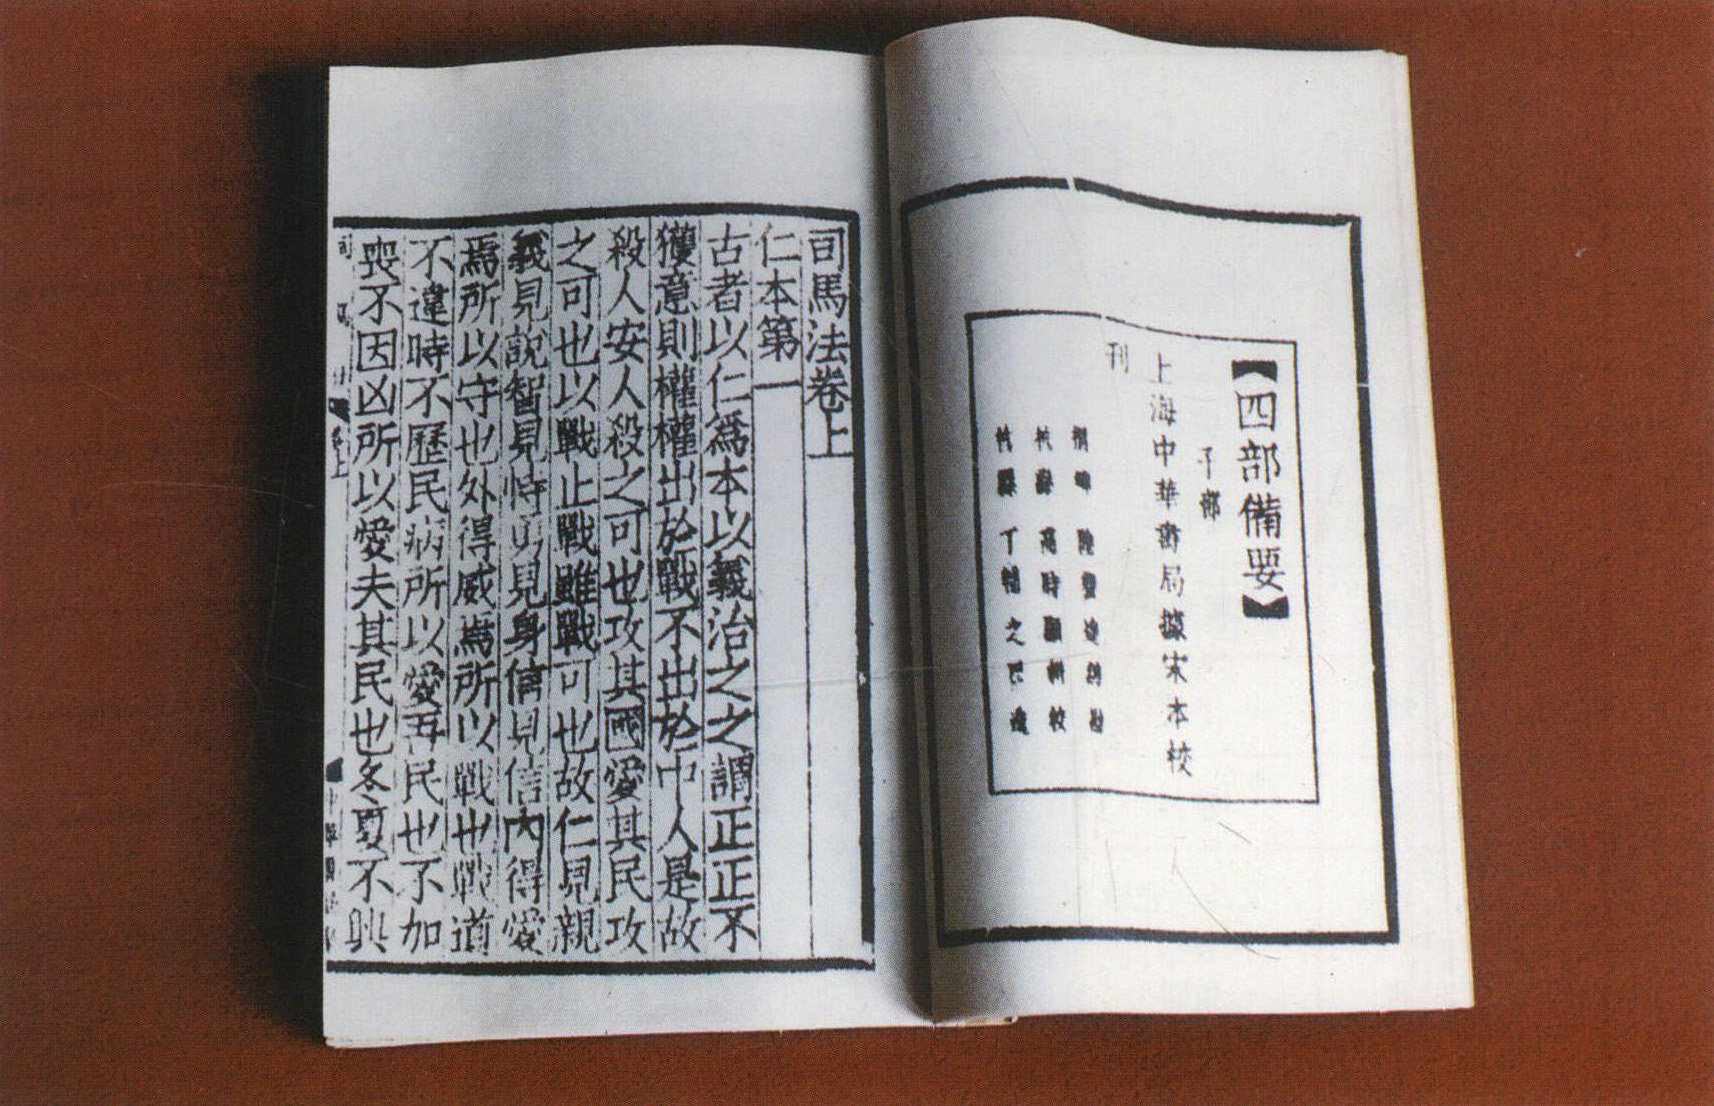 【四部備要】
子部
上海中華書局據宋本校
刊
桐鄉 陸費逵總勘
杭縣 高時顯輯校
杭縣 丁輔之監造
司馬法卷上
仁本第一
古者以仁爲本以義治之之謂正正不
獲意則權權出於戰不出於中人是故
殺人安人殺之可也攻其國愛其民攻
之可也以戰止戰雖戰可也故仁見親
義見説智見恃勇見身信見信內得愛
焉所以守也外得威焉所以戰也戰道
不違時不歷民病所以愛吾民也不加
喪不因凶所以愛夫其民也冬夏不興